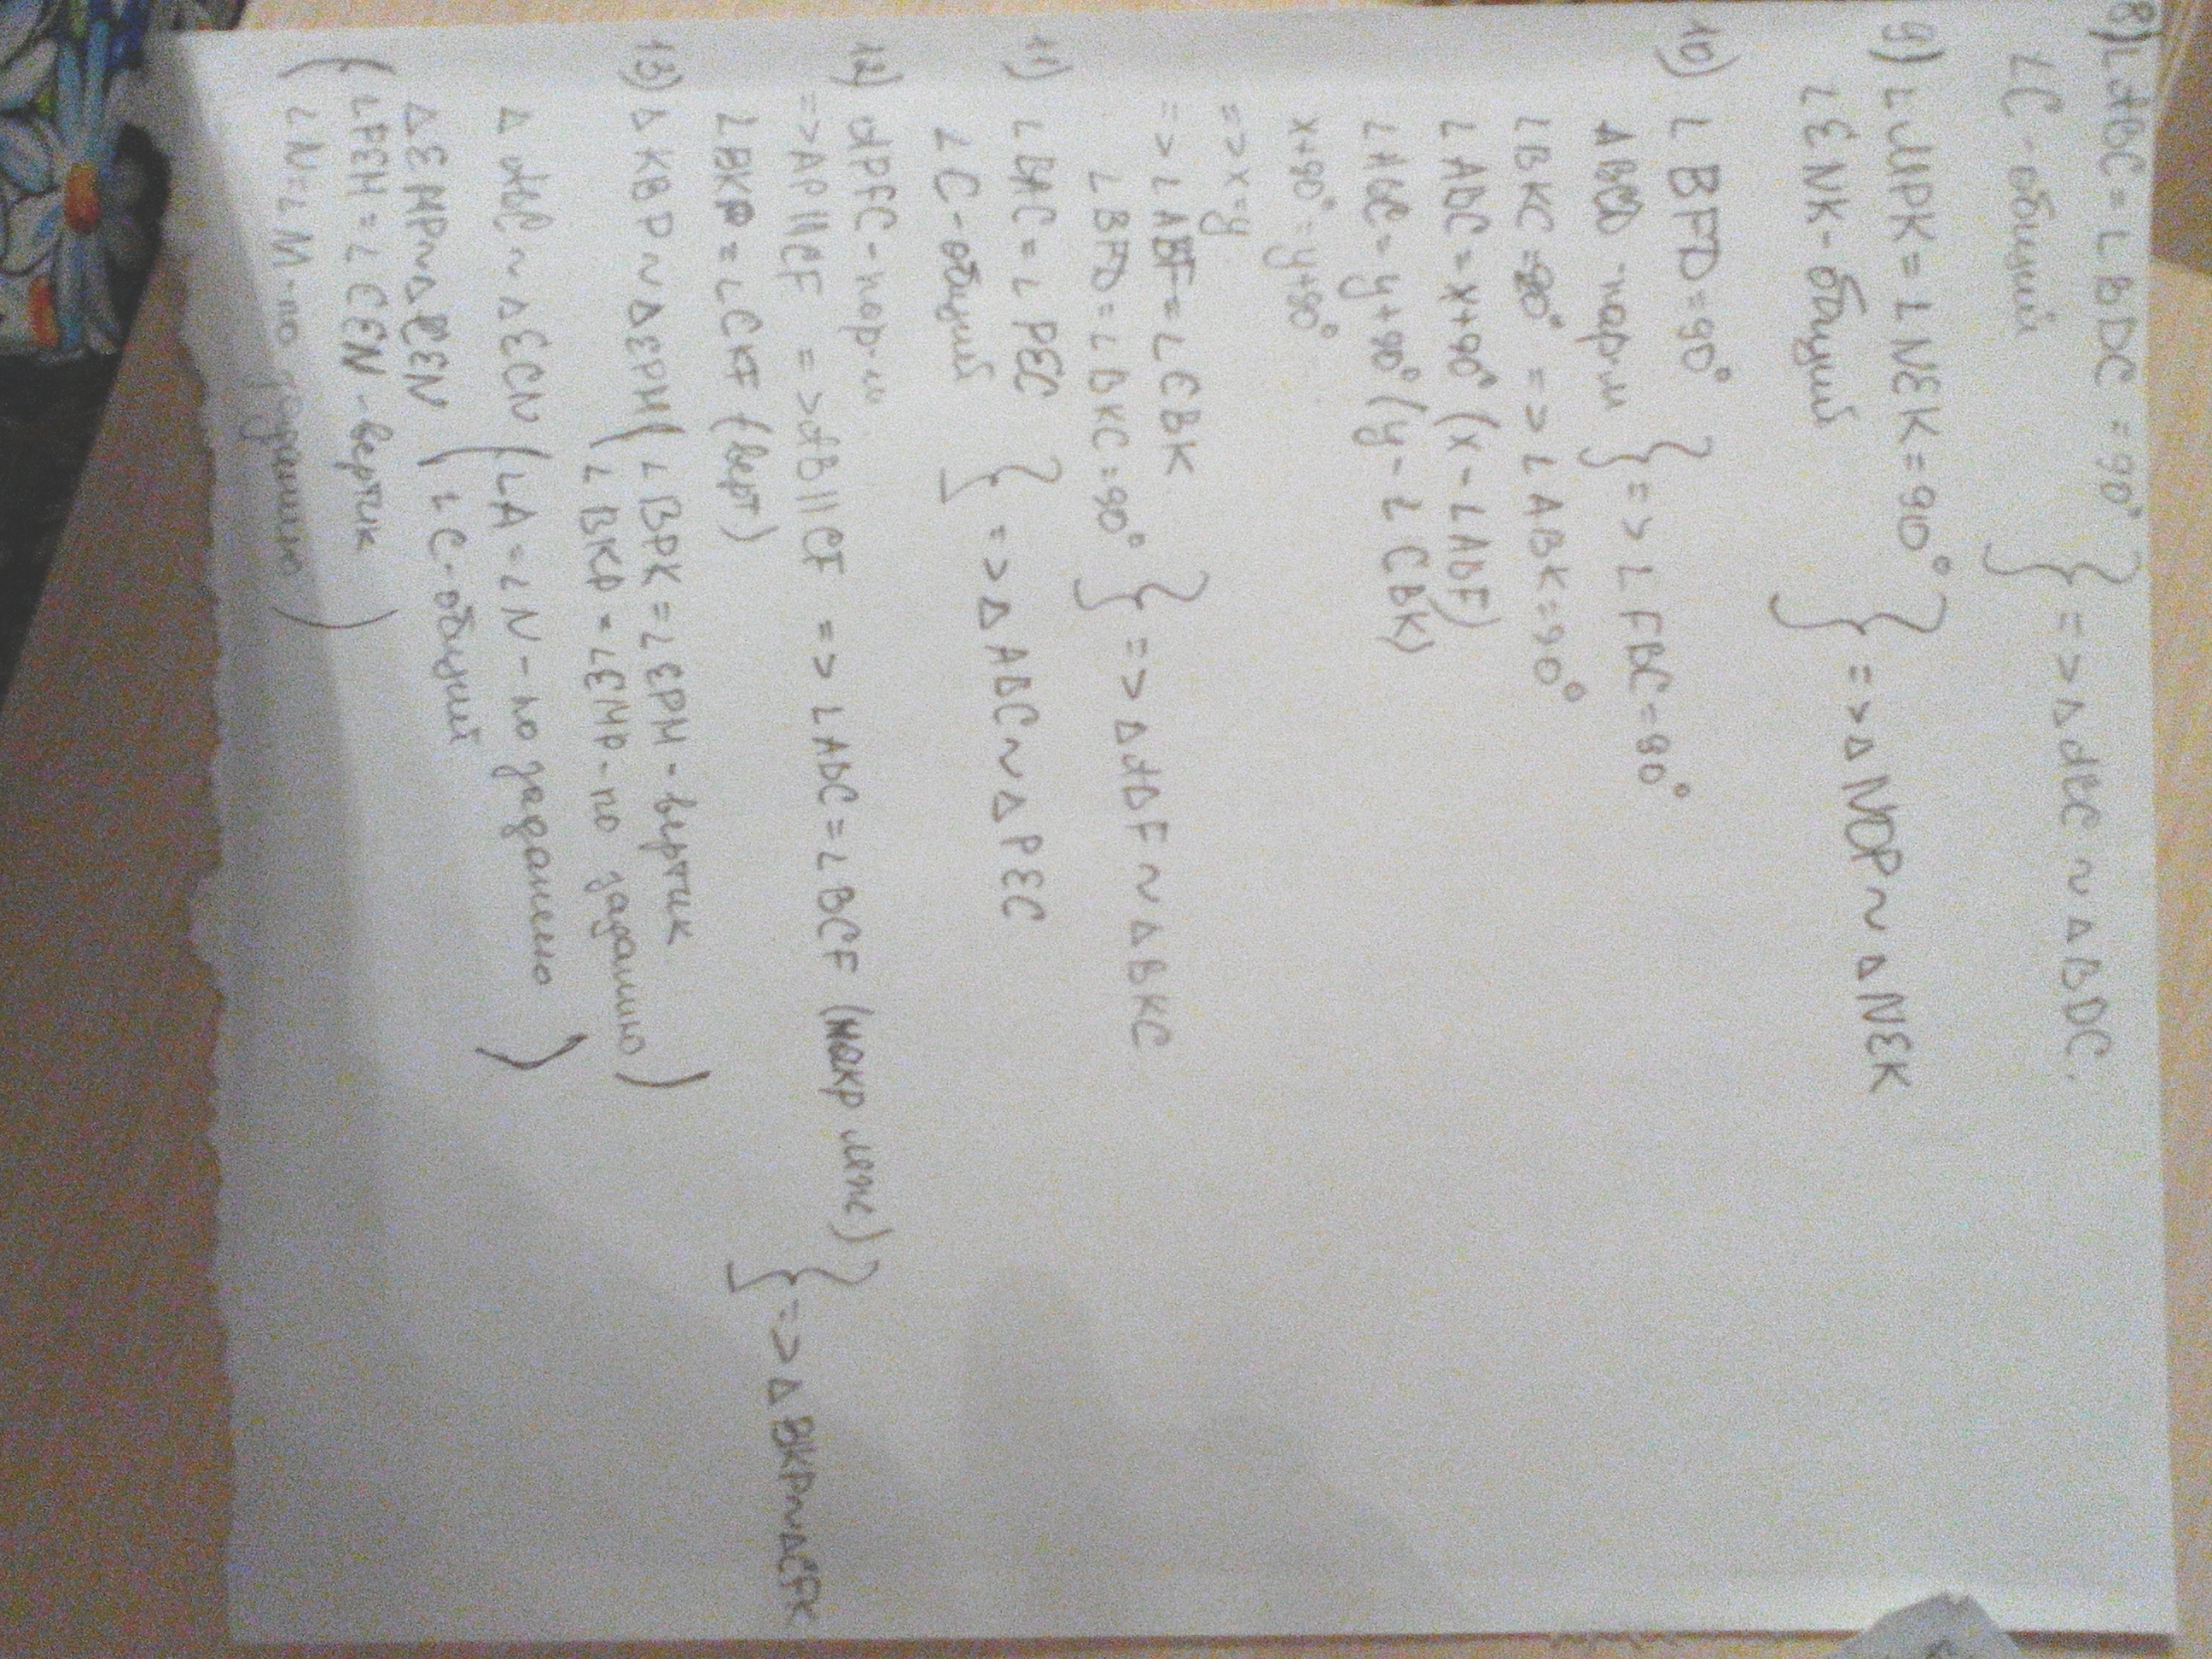 8) ∠ABC = ∠BDC = 90° } => ∆ABC ~ ∆BDC.
∠C - общий
9) ∠MPK = ∠NEK = 90° } => ∆NDP ~ ∆NEK
∠ENK - общий
10) ∠BFD = 90° } => ∠FBC = 90°
ABCD - пар-м
∠BKC = 90° => ∠ABK = 90°
∠ADC = x+90° (x - ∠ADF)
∠ABC = y+90° (y - ∠CBK)
x+90° = y+90°
=> x = y
=> ∠ADF = ∠CBK } => ∆ADF ~ ∆BKC
∠BFD = ∠BKC = 90°
11) ∠BAC = ∠PEC } => ∆ABC ~ ∆PEC
∠C - общий
12) APFC - пар-м
=> AP||CF => AB||CF => ∠ABC = ∠BCF (накр леж) } => ∆BKP ~ ∆CFK
∠BKP = ∠CKF (верт)
13) ∆KBP ~ ∆EPM (∠BPK = ∠EPM - вертик
∠BKP = ∠EMP - по заданию)
∆ABC ~ ∆ECN (∠A = ∠N - по заданию)
∆EMP ~ ∆CEN (∠C - общий
(∠PEM = ∠CEN - вертик
(∠N = ∠M - по заданию)